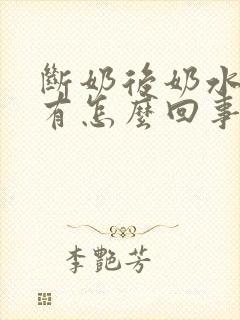 斷奶後奶水
有怎麼回事
李艷芳